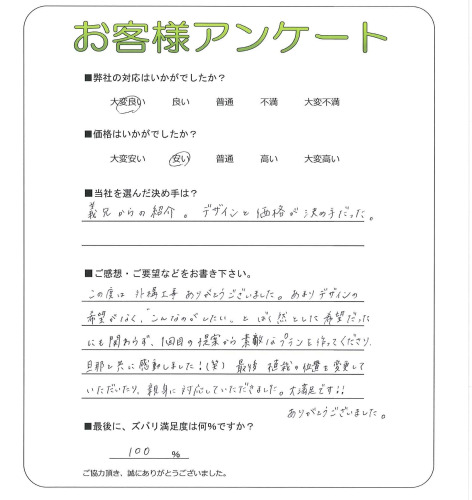 お客様アンケート
■弊社の対応はいかがでしたか？
大変良い 良い 普通 不満 大変不満
■価格はいかがでしたか？
大変安い 安い 普通 高い 大変高い
■当社を選んだ決め手は？
義兄からの紹介。デザインと価格が決め手だった。
■ご感想・ご要望などをお書き下さい。
この度は外構工事ありがとうございました。あまりデザインの
希望がなく、"こんなのがしたい"とばく然とした希望だった
にも関わらず、1回目の提案から素敵なプランを作ってくださり、
旦那と共に感動しました！(笑) 最後植栽の位置を変更して
いただいたり、親身に対応していただきました。大満足です!!
ありがとうございました。
■最後に、ズバリ満足度は何%ですか？
100 %
ご協力頂き、誠にありがとうございました。